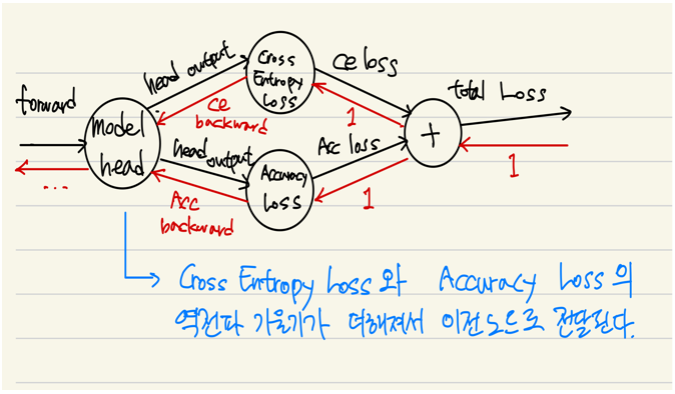 forward
model
head
...
head output
ce
backward
head output
Acc
backward
Cross
Entropy
Loss
Accuracy
Loss
ce loss
1
Acc loss
1
+
total Loss
1
Cross Entropy Loss와 Accuracy Loss의
역전파 기울기가 더해져서 이전 노드로 전달된다.